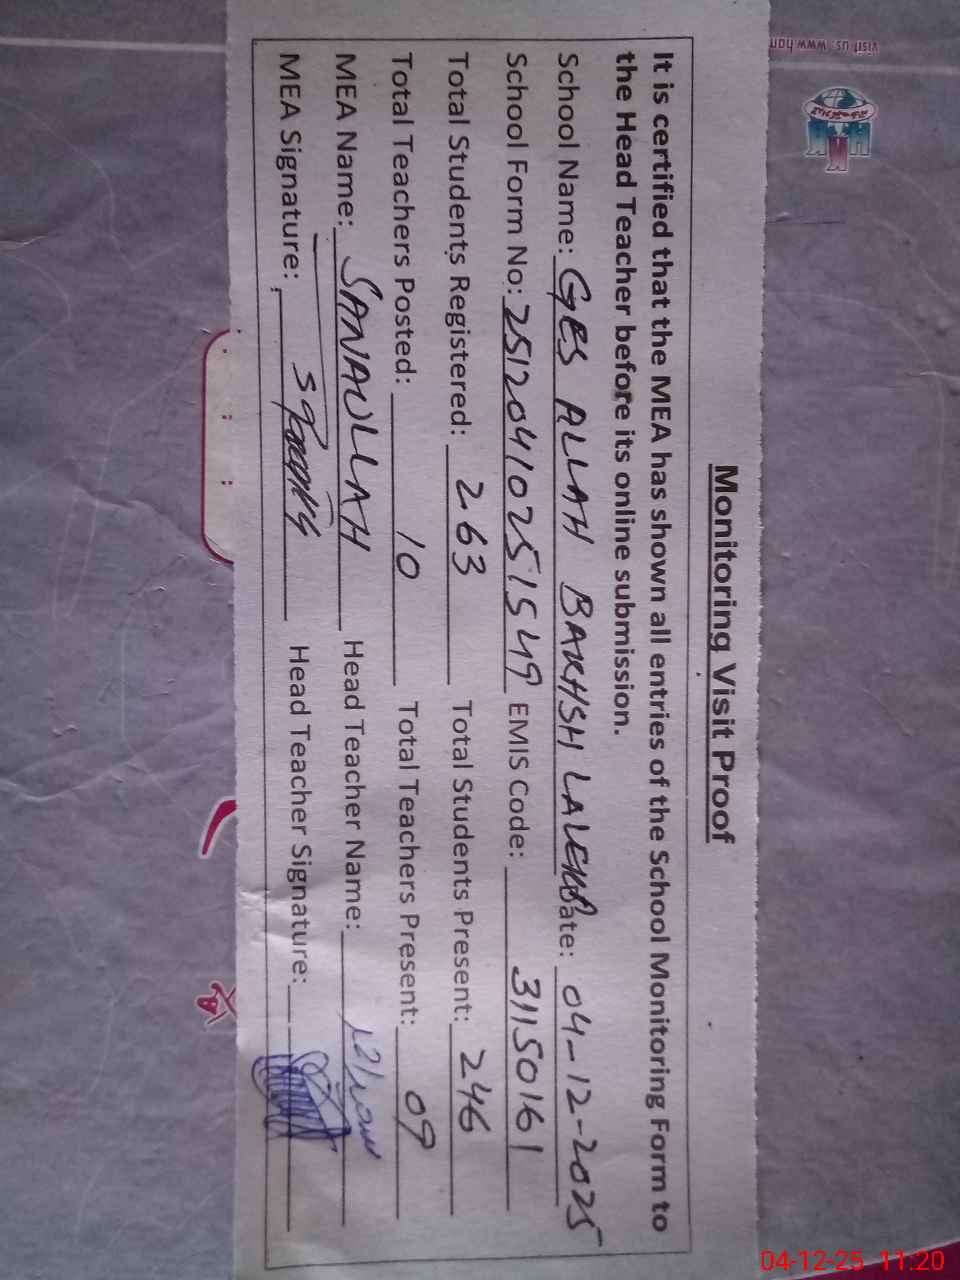 Monitoring Visit Proof
It is certified that the MEA has shown all entries of the School Monitoring Form to
the Head Teacher before its online submission.
School Name: GES ALLAH BAKHSH Date: 04-12-2025
School Form No: 251204102515 49 EMIS Code: 31150161
Total Students Registered: 263 Total Students Present: 246
Total Teachers Posted: 10 Total Teachers Present: 09
MEA Name: SANAULLAH Head Teacher Name:
MEA Signature: Head Teacher Signature:
visit us: www
04-12-25 11:20